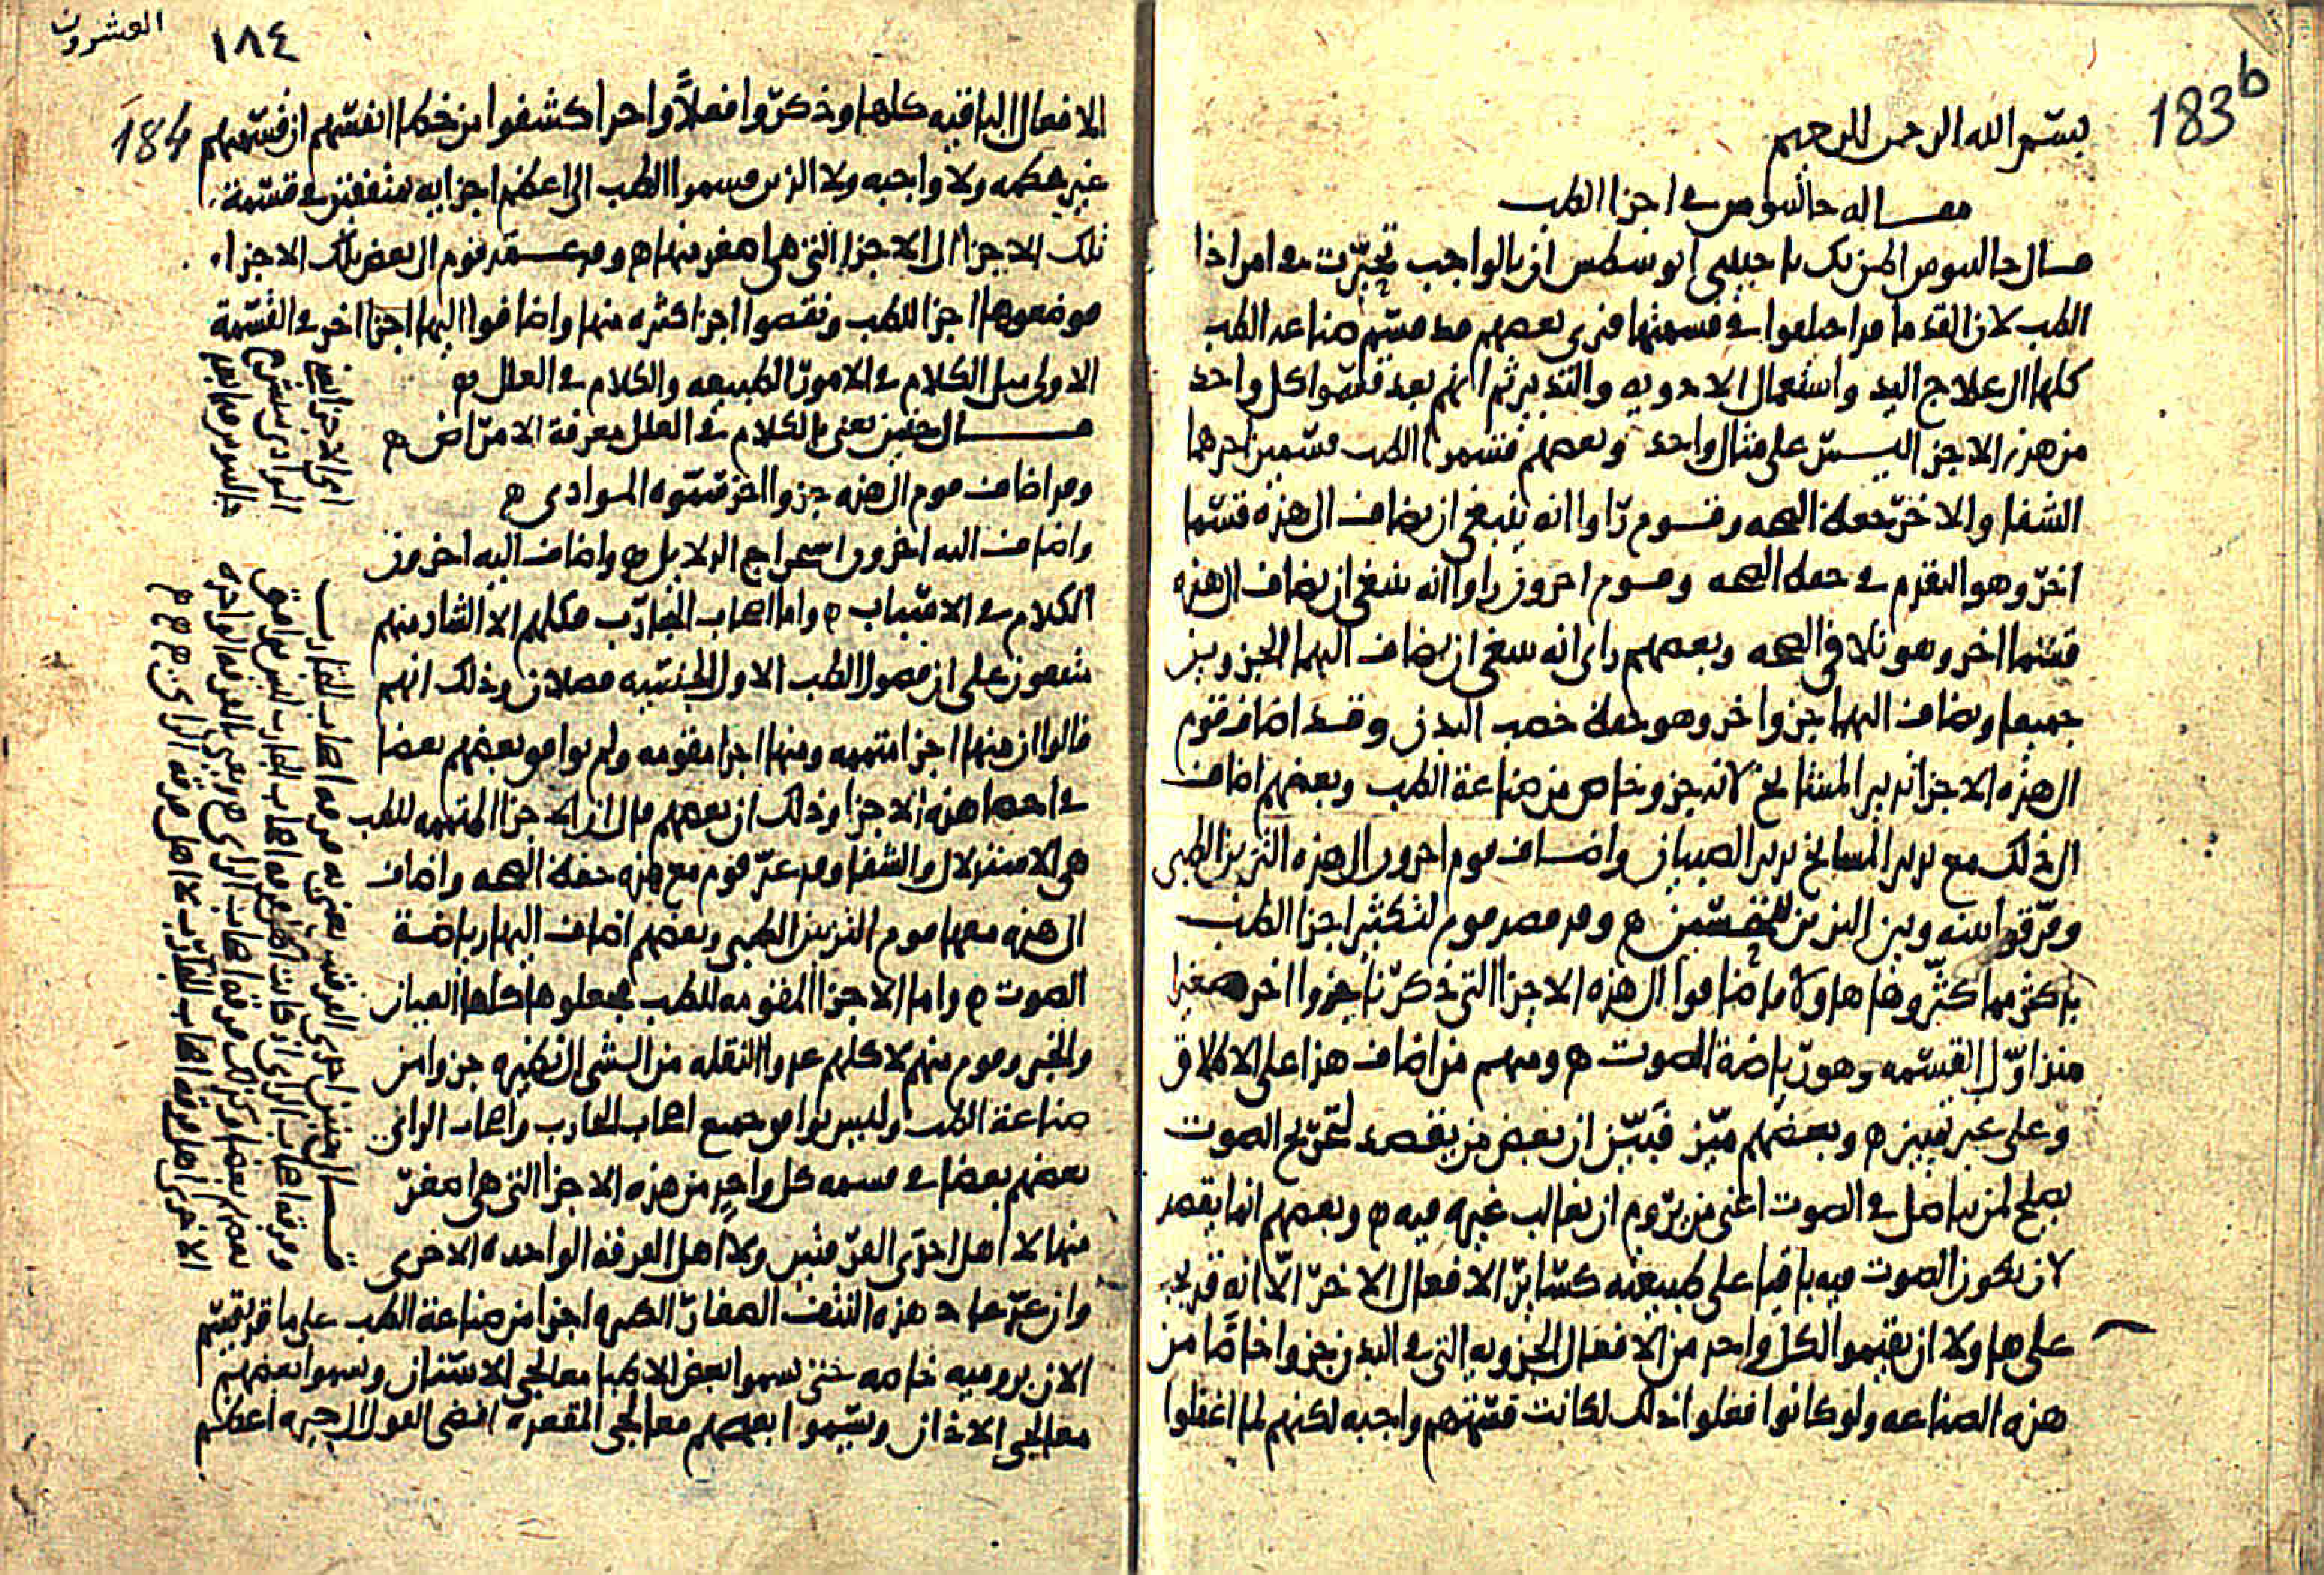 183b
بسم الله الرحمن الرحيم
مقاله جالينوس في اجزا الطب
قال جالينوس اظن بك يا حبيبي ان بالواجب تحيرت في امر اجزا
الطب لان القدما قد اختلفوا في قسمتها فنرى بعضهم قد قسم صناعه الطب
كلها الى علاج اليد واستعمال الادويه والتدبير ثم انهم بعد قسموا كل واحد
من هذه الاجزا ليس على مثال واحد وبعضهم قسموا الطب قسمين احدهما
الشفا والاخر حفظ الصحه وقوم راوا انه ينبغي ان يضاف الى هذه قسما
اخر وهو التقدم في حفظ الصحه وقوم اخرون راوا انه ينبغي ان يضاف الى هذه
قسما اخر وهو تلافي الصحه وبعضهم راى انه ينبغي ان يضاف اليها الجزوين
جميعا ويضاف اليها جزوا اخر وهو حفظ خصب البدن وقد اضاف قوم
الى هذه الاجزا تدبير المشائخ لانه جزو خاص من صناعة الطب وبعضهم اضاف
الى ذلك مع تدبير المشايخ تدبير الصبيان واضاف قوم اخرون الى هذه التزيين الطبي
وفرقوا بينه وبين التزيين للتحسين ه وقد قصد قوم لتكثير اجزا الطب
باكثر مما كثروها هاولا فاضافوا الى هذه الاجزا التي ذكرنا جزوا اخر صغيرا
منذ اول القسمه وهو رياضة الصوت ه ومنهم من اضاف هذا على الاطلاق
وعلى غير تمييز ه وبعضهم ميز فبين ان بعض من يقصد لتخريج الصوت
يصلح لمن يناضل في الصوت اعني من يروم ان يغالب غيره فيه ه وبعضهم انما يقصد
لان يكون الصوت فيه باقيا على طبيعته كسائر الافعال الاخر الا انه قد يجب
على هاولا ان يقسموا لكل واحد من الافعال الجزويه التي في البدن جزوا خاصا من
هذه الصناعه ولو كانوا فعلوا ذلك لكانت قسمتهم واجبه لكنهم لما اغفلوا
العشرون
١٨٤
184
الافعال الباقيه كلها وذكروا فعلا واحدا كشفوا من خطا انفسهم ان قسمتهم
غير محكمه ولا واجبه ولا الذين قسموا الطب الى اعظم اجزايه متفقين في قسمة
تلك الاجزا الى الاجزا التي هي اصغر منها ه وقد عمد قوم الى بعض تلك الاجزا
فوضعوها اجزا للطب ونقصوا اجزا كثيره منها واضافوا اليها اجزا اخر في القسمة
الاولى مثل الكلام في الامور الطبيعيه والكلام في العلل ه
قال حنين يعني بالكلام في العلل معرفة الامراض ه
وقد اضاف قوم الى هذه جزوا اخر سموه الموادي ه
واضاف اليه اخرون استخراج الدلايل ه واضاف اليه اخرون
الكلام في الاسباب ه واما اصحاب التجارب فكلهم الا الشاذ منهم
متفقون على ان فصول الطب الاول الجنسيه فصلان وذلك انهم
قالوا ان منها اجزا متممه ومنها اجزا مقومه ولم يوافق بعضهم بعضا
في احصا هذه الاجزا وذلك ان بعضهم قال ان الاجزا المتممه للطب
هي الاستدلال والشفا وقد عد قوم مع هذه حفظ الصحه واضاف
الى هذه معها قوم التزيين الطبي وبعضهم اضاف اليها رياضة
الصوت ه واما الاجزا المقومه للطب فجعلوها كلها العيان
والخبر وقوم منهم لا كلهم عدوا النقله من الشي الى نظيره جزوا من
صناعة الطب وليس يوافق جميع اصحاب التجارب واصحاب الراي
بعضهم بعضا في قسمه كل واحد من هذه الاجزا التي هي اصغر
منها لا اهل احدى الفرقتين ولا اهل الفرقة الواحده الاخرى
وان عد عاد هذه النتف الصغار الكثيره اجزا من صناعة الطب على ما قد يقسم
الان بروميه خاصه حتى يسموا بعض الاطبا معالجي الاسنان ويسموا بعضهم
معالجي الاذان ويسموا بعضهم معالجي المقعده افضى القول الى حيره اعظم
قال حنين احدى الفرقتين يعني به فرقه اصحاب التجارب
الاخرى اهل فرقه اصحاب التجارب مع اهل فرقه الراي ه ه ه